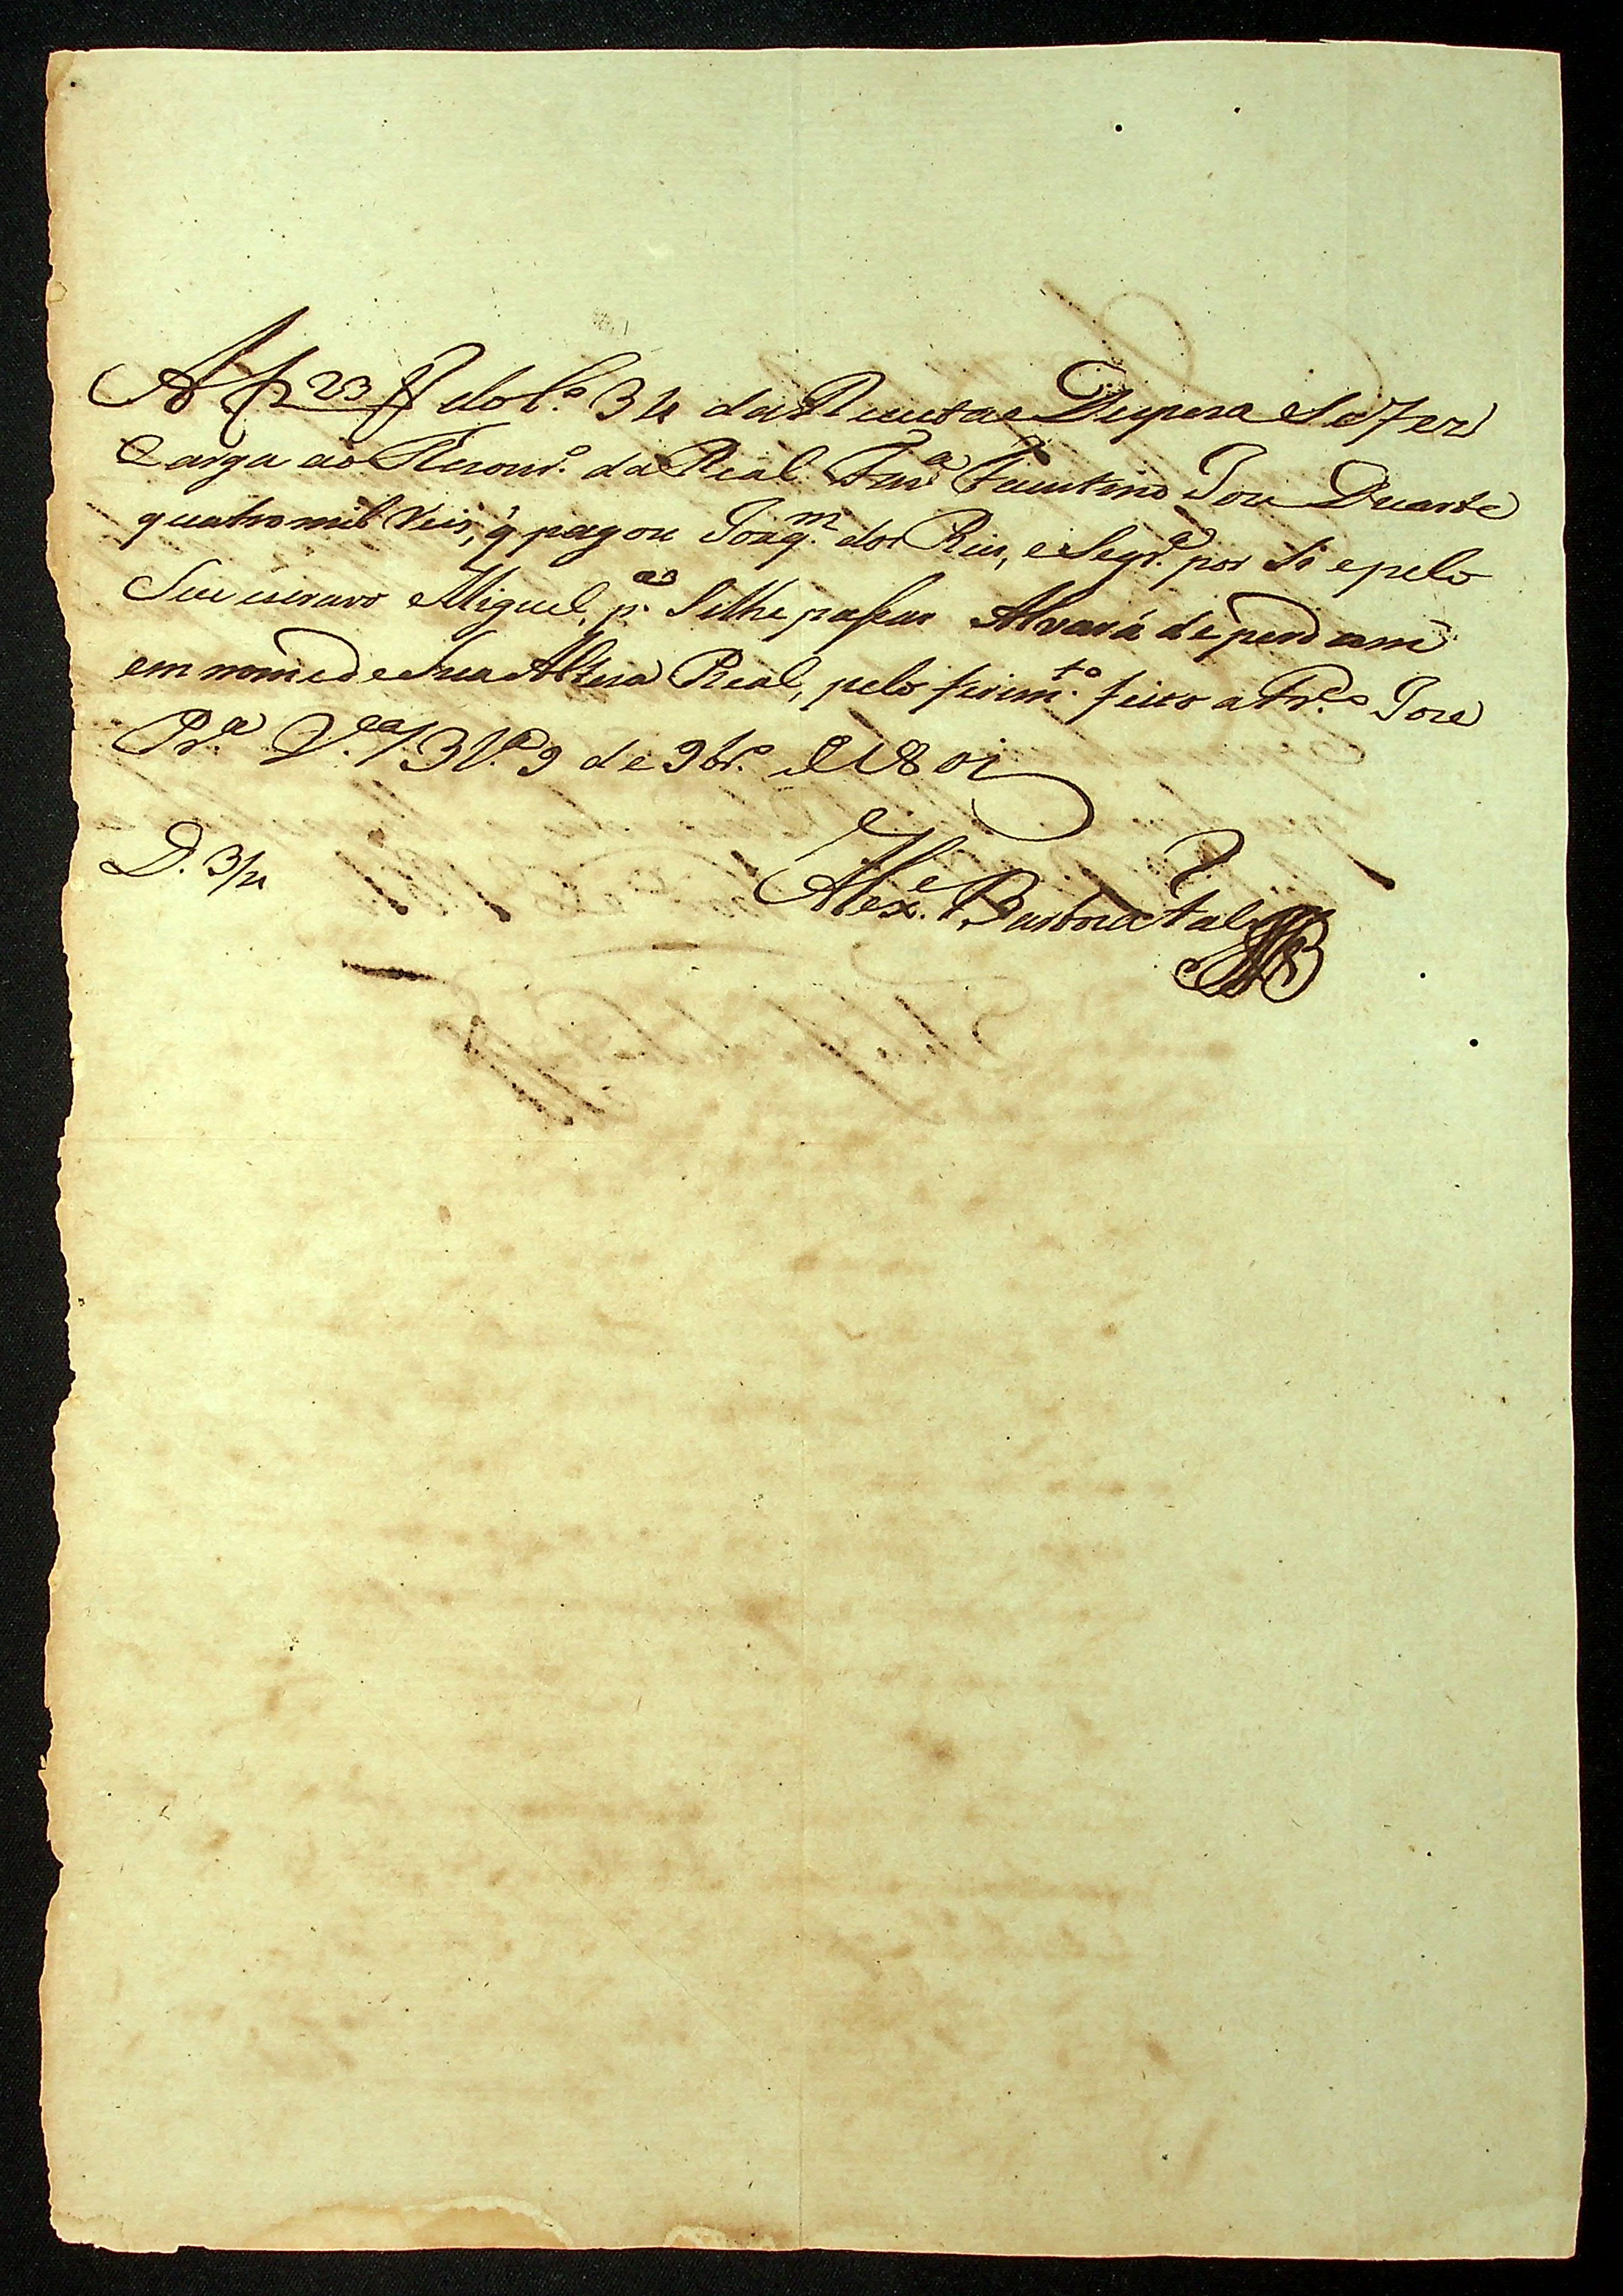 A f 23 do L.º 3 da Receita e Despesa se fez
Carga ao Thesour.º da Real Faz.ª Faustino Joze Duarte
quatro mil reis, q̃ pagou Joaq.m dos Reis, e Seq.ra por si e pelo
Seu escravo Miguel, p.ª se lhe passar Alvará de perdam
em nome de Sua Alteza Real, pelo ferim.to feito a Fr.co Joze
Pr.ª V.ª 9 de 9br.º de 1801
D. 3/4
Alex.e Barboza